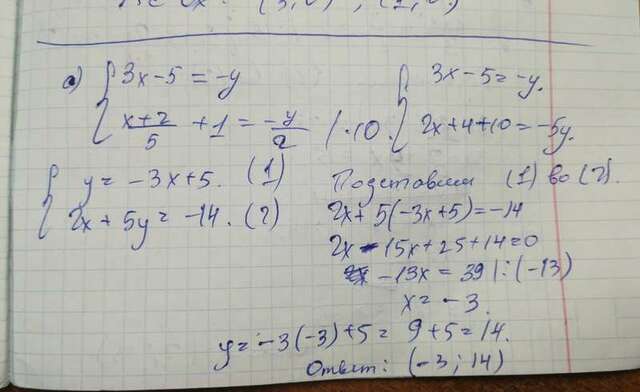 а) { 3x-5 = -y
x+2/5 + 1 = -y/2 / ·10
{ 3x-5 = -y.
2x+4+10 = -5y.
{ y = -3x+5. (1)
2x + 5y = -14. (2)
Подставим (1) во (2).
2x + 5(-3x+5) = -14
2x - 15x + 25 + 14 = 0
-13x = 39 |:(-13)
x = -3.
y = -3(-3)+5 = 9+5 = 14.
Ответ: (-3; 14)